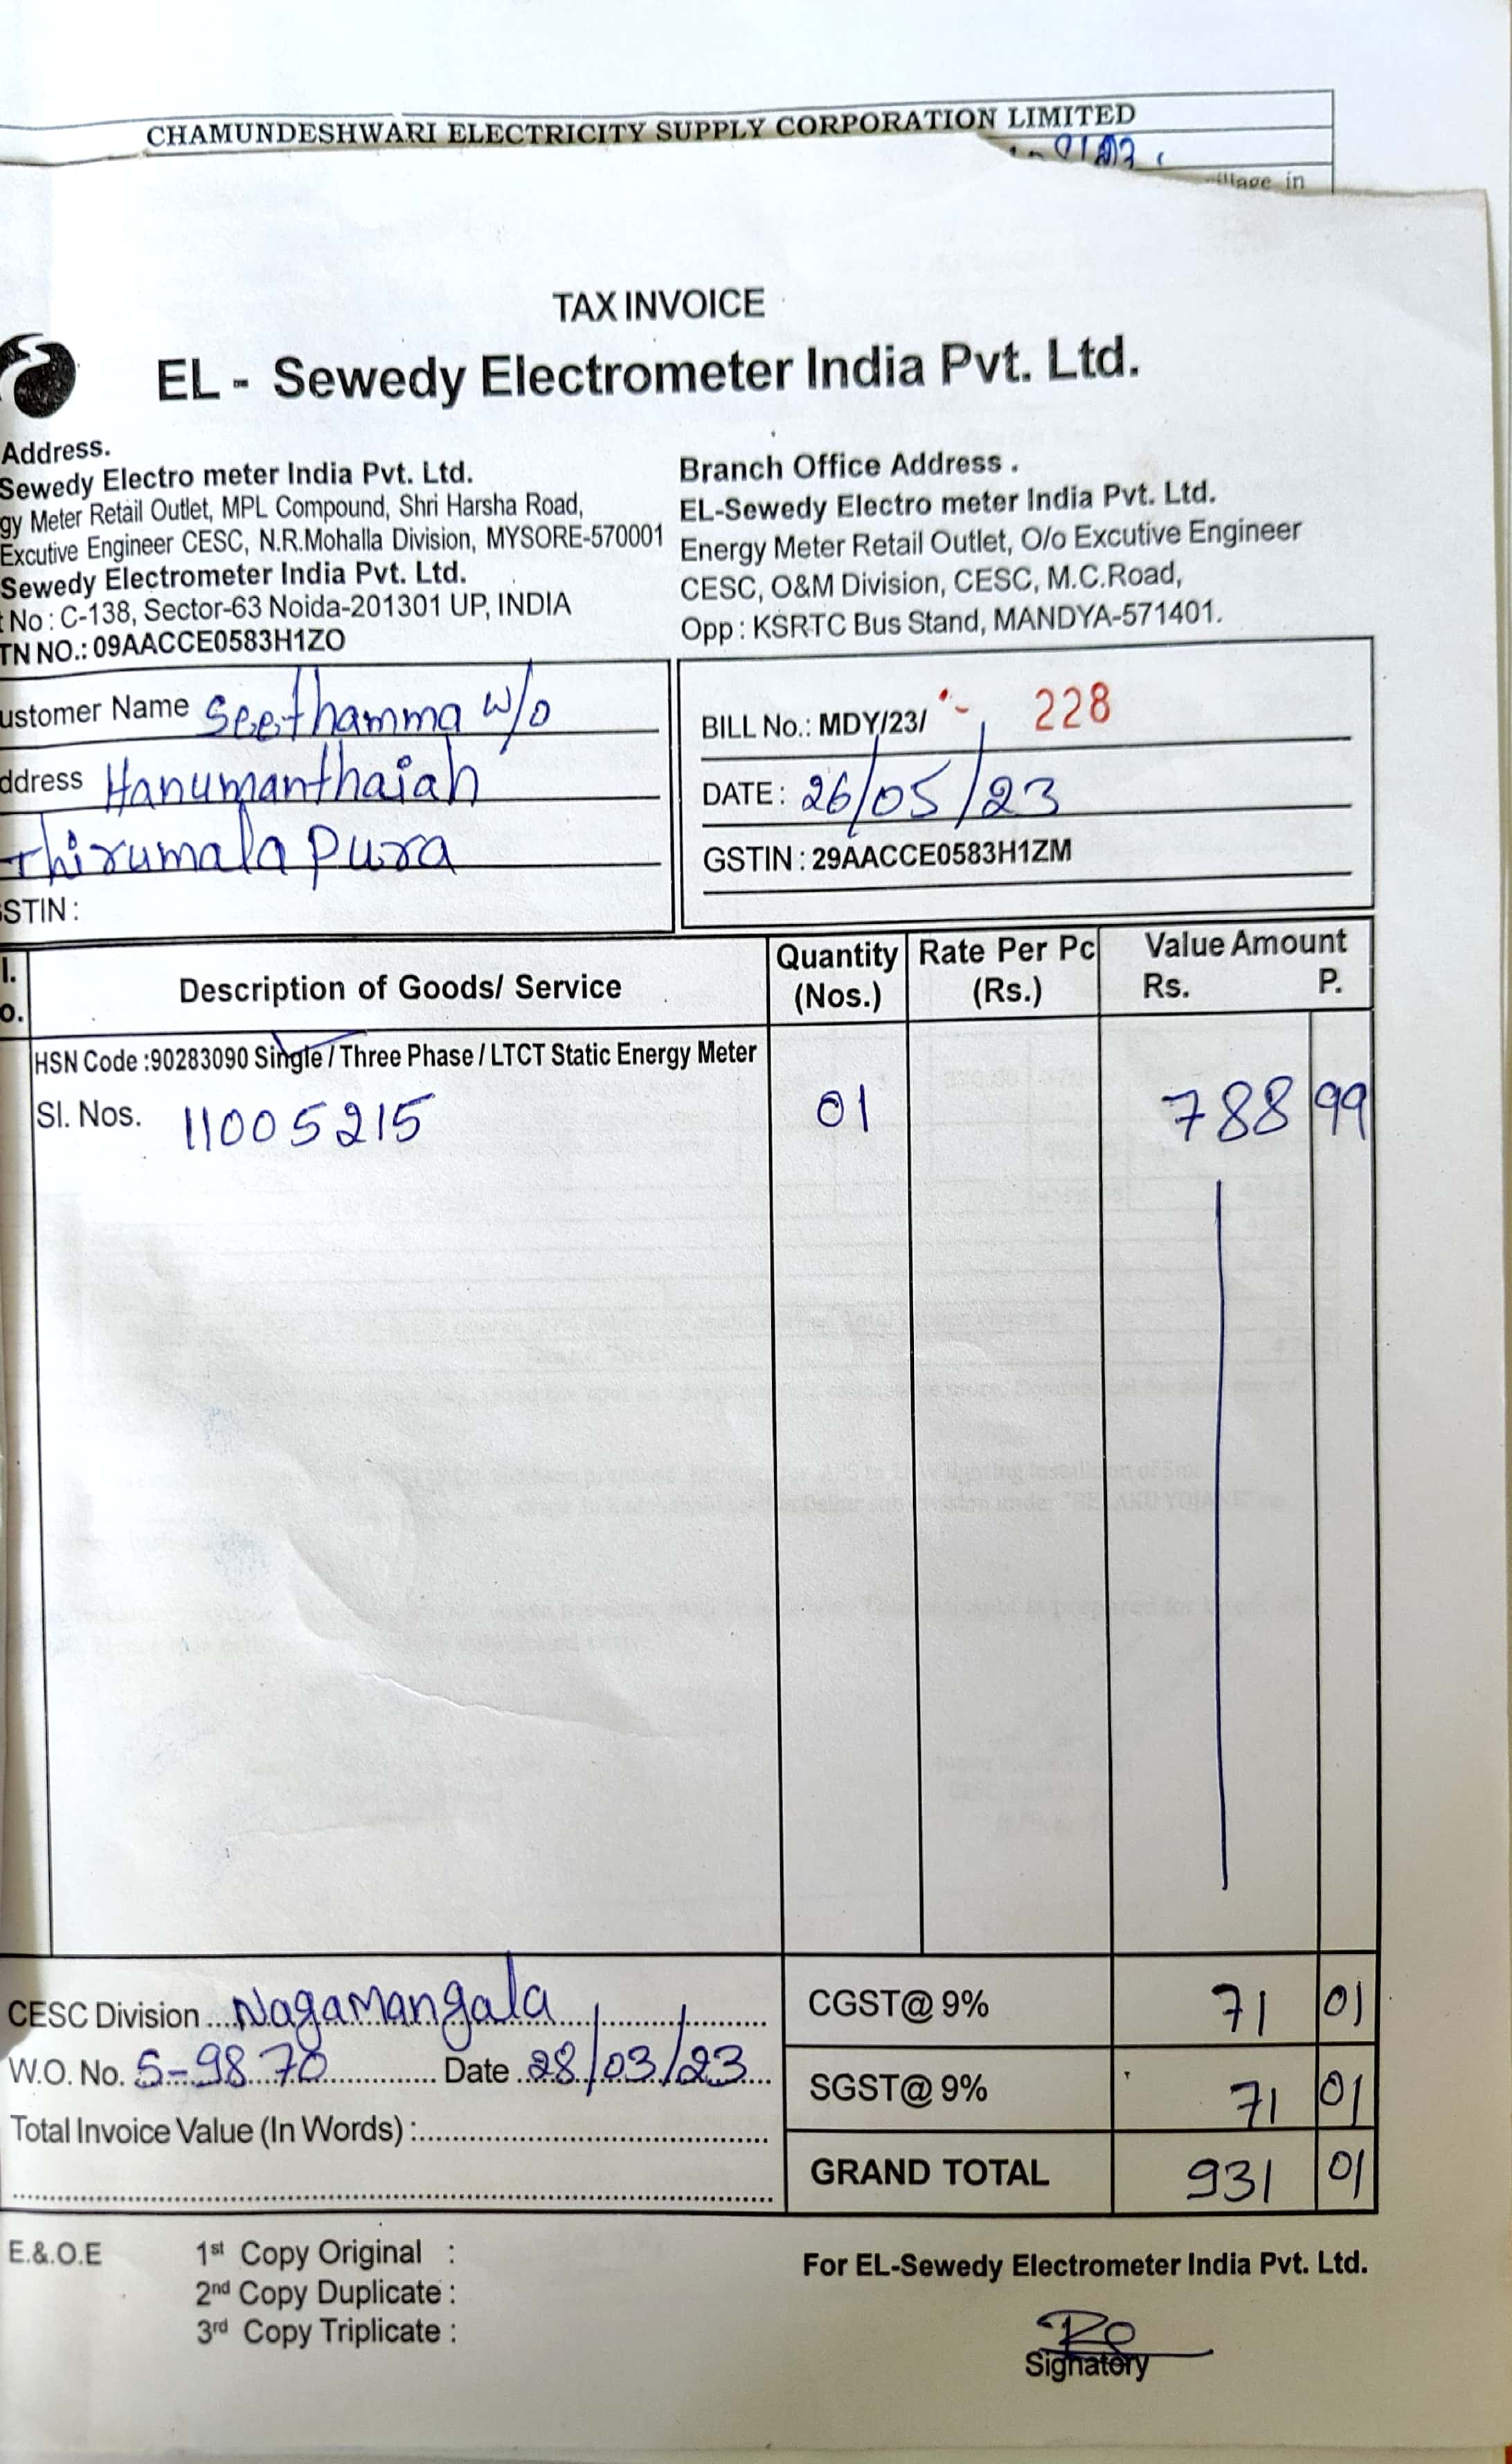 CHAMUNDESHWARI ELECTRICITY SUPPLY CORPORATION LIMITED
in
TAX INVOICE
EL - Sewedy Electrometer India Pvt. Ltd.
Address.
Sewedy Electro meter India Pvt. Ltd.
gy Meter Retail Outlet, MPL Compound, Shri Harsha Road,
Excutive Engineer CESC, N.R.Mohalla Division, MYSORE-570001
Sewedy Electrometer India Pvt. Ltd.
No : C-138, Sector-63 Noida-201301 UP, INDIA
TN NO.: 09AACCE0583H1ZO
Branch Office Address .
EL-Sewedy Electro meter India Pvt. Ltd.
Energy Meter Retail Outlet, O/o Excutive Engineer
CESC, O&M Division, CESC, M.C.Road,
Opp : KSRTC Bus Stand, MANDYA-571401.
ustomer Name Seethamma W/o
ddress Hanumanthaiah
Thirumalapura
STIN :
BILL No.: MDY/23/ 228
DATE : 26/05/23
GSTIN : 29AACCE0583H1ZM
l. Description of Goods/ Service Quantity Rate Per Pc Value Amount
o. (Nos.) (Rs.) Rs. P.
HSN Code :90283090 Single / Three Phase / LTCT Static Energy Meter
Sl. Nos. 11005215 01 788 99
CESC Division Nagamangala CGST@ 9% 71 01
W.O. No. S-9870 Date 28/03/23 SGST@ 9% 71 01
Total Invoice Value (In Words) :
GRAND TOTAL 931 01
E.&.O.E 1st Copy Original :
2nd Copy Duplicate :
3rd Copy Triplicate :
For EL-Sewedy Electrometer India Pvt. Ltd.
Signatory